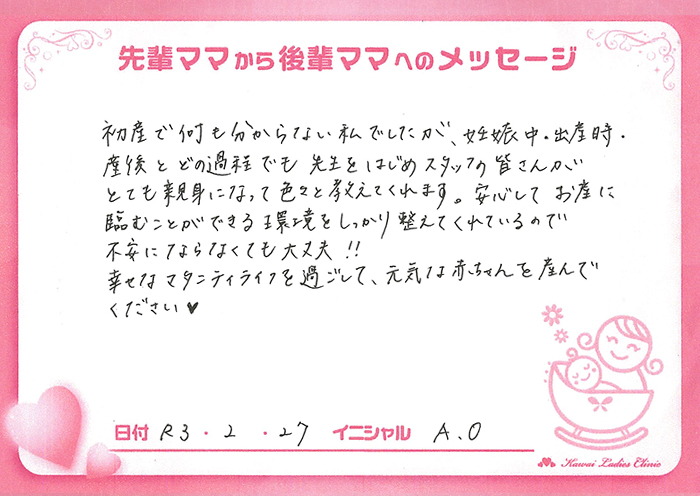 先輩ママから後輩ママへのメッセージ
初産で何も分からない私でしたが、妊娠中・出産時・
産後とどの過程でも先生をはじめスタッフの皆さんが
とても親身になって色々と教えてくれます。安心してお産に
臨むことができる環境をしっかり整えてくれているので
不安にならなくても大丈夫!!
幸せなマタニティライフを過ごして、元気な赤ちゃんを産んで
ください♥
日付 R3・2・27 イニシャル A.O
Kawai Ladies Clinic